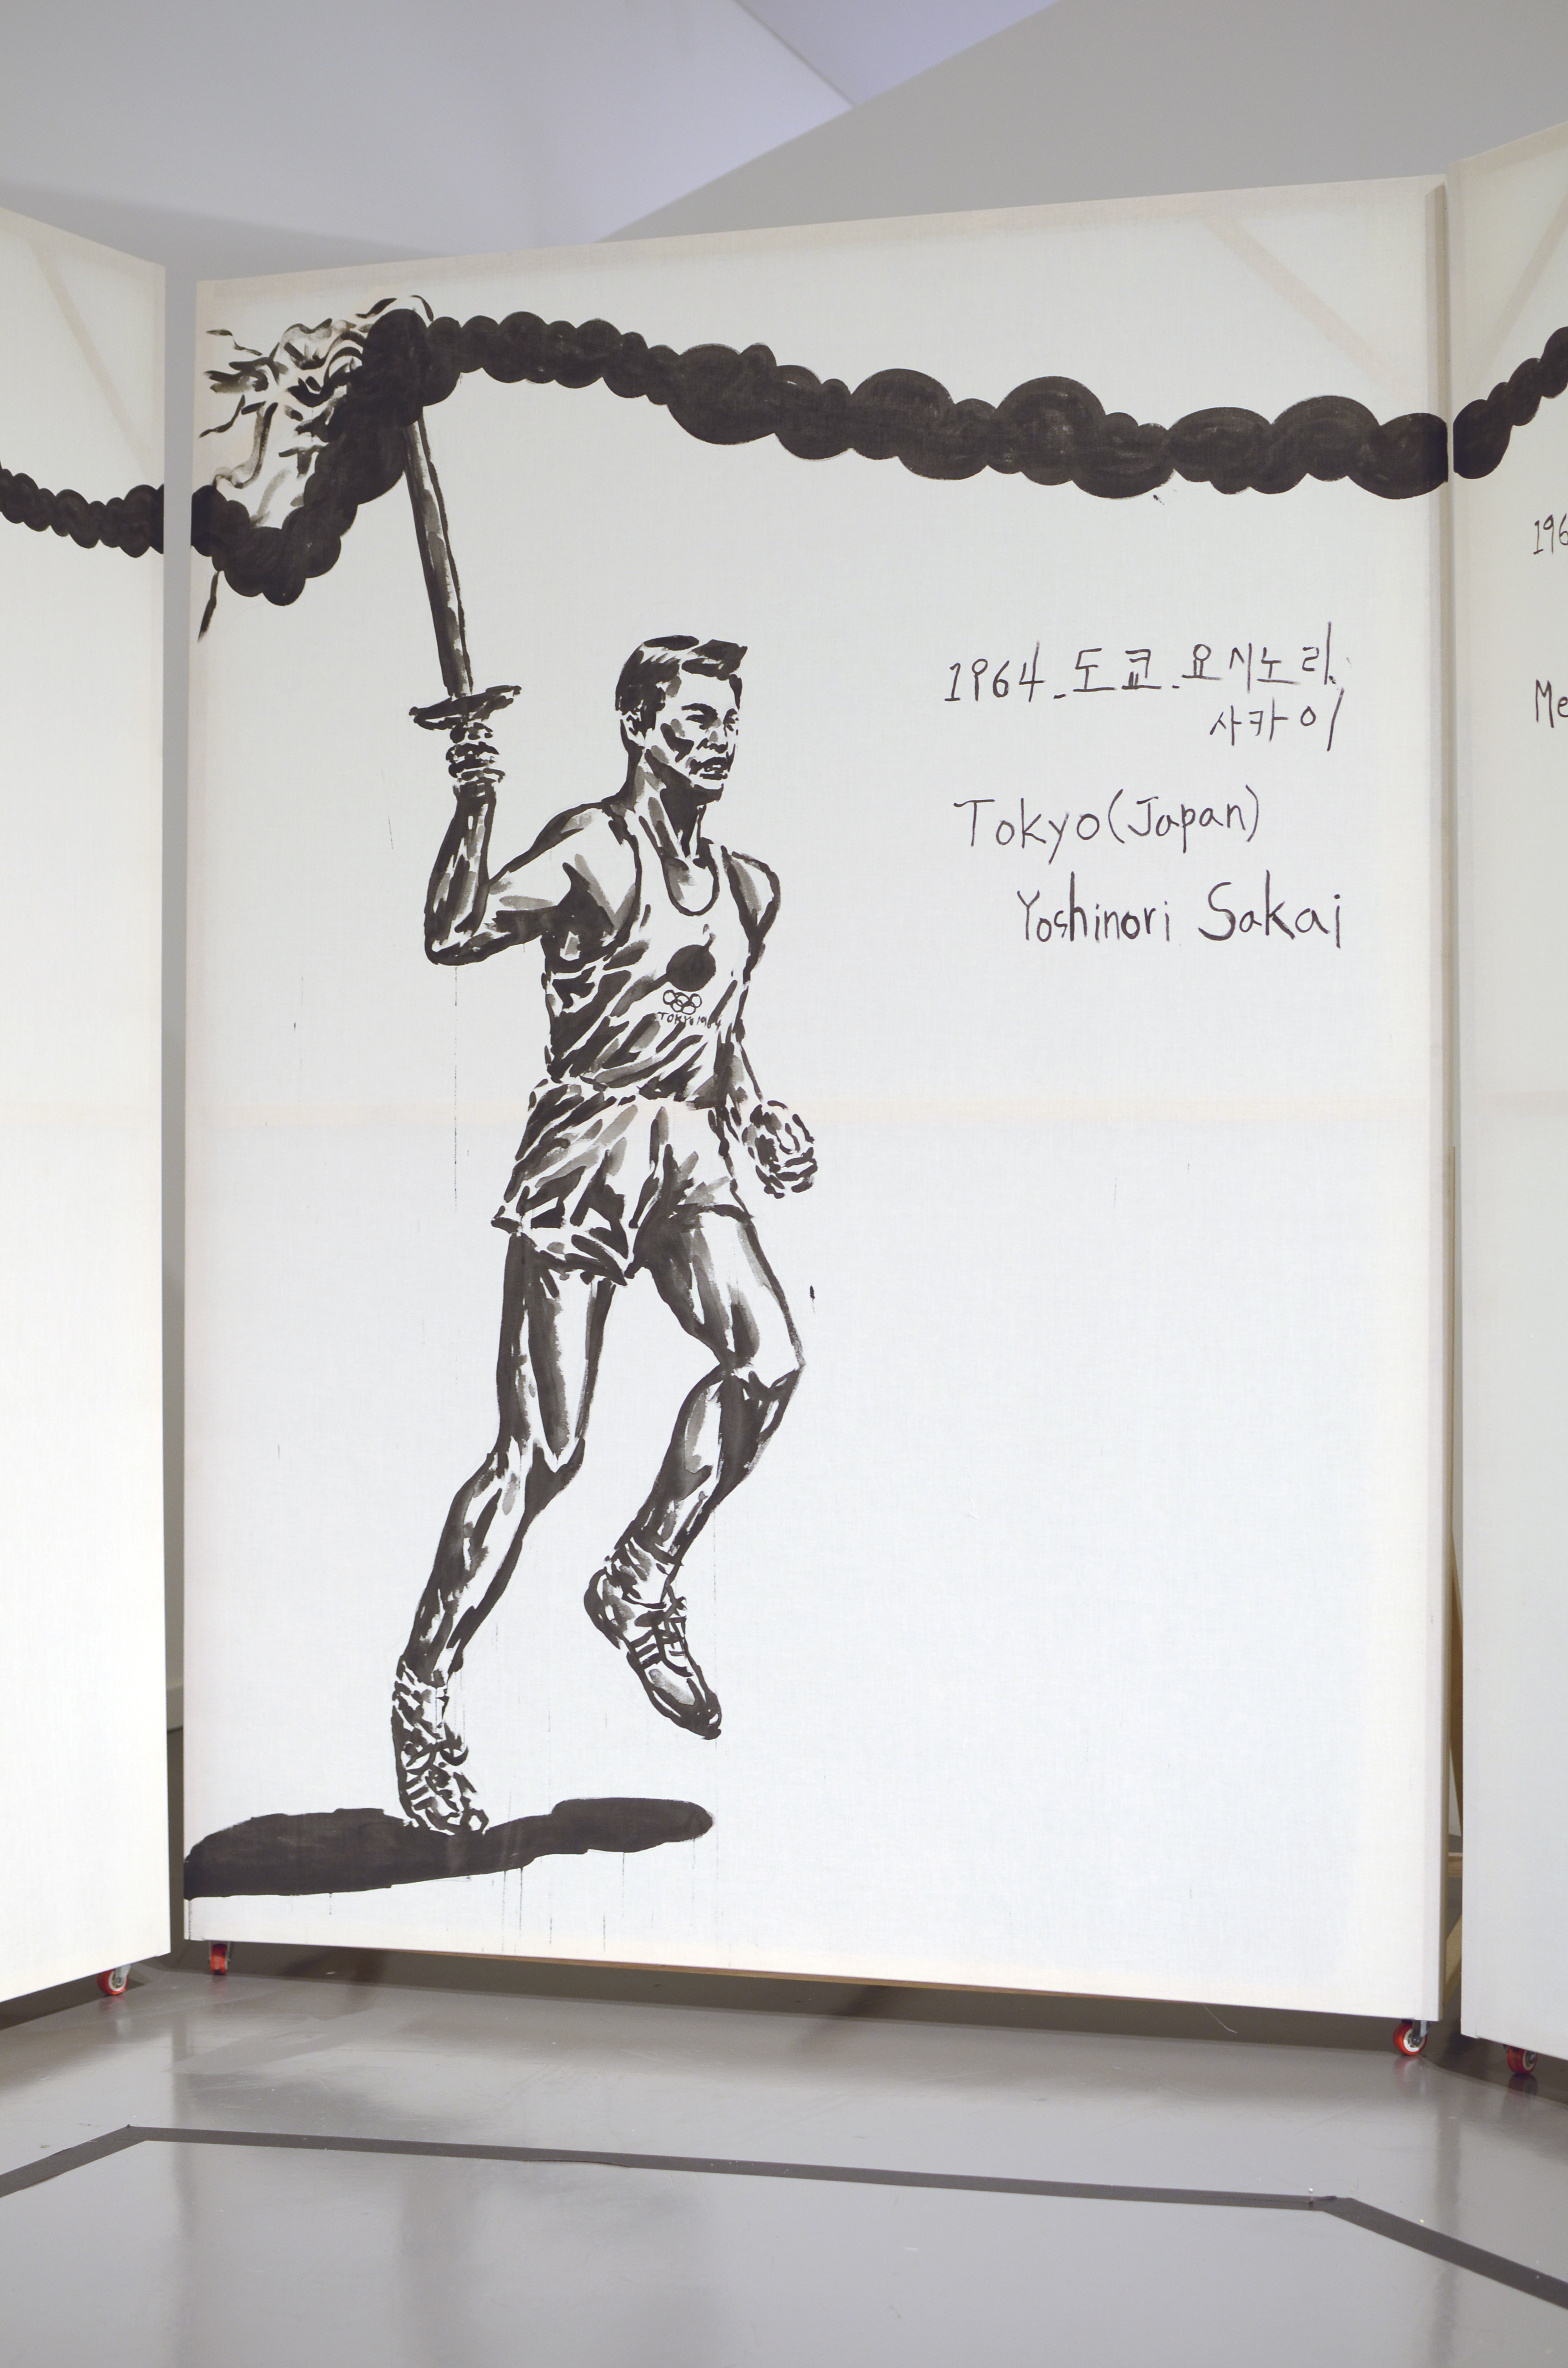 1964. 도쿄. 요시노리.
사카이
Tokyo (Japan)
Yoshinori Sakai
TOKYO 1964
196
Me